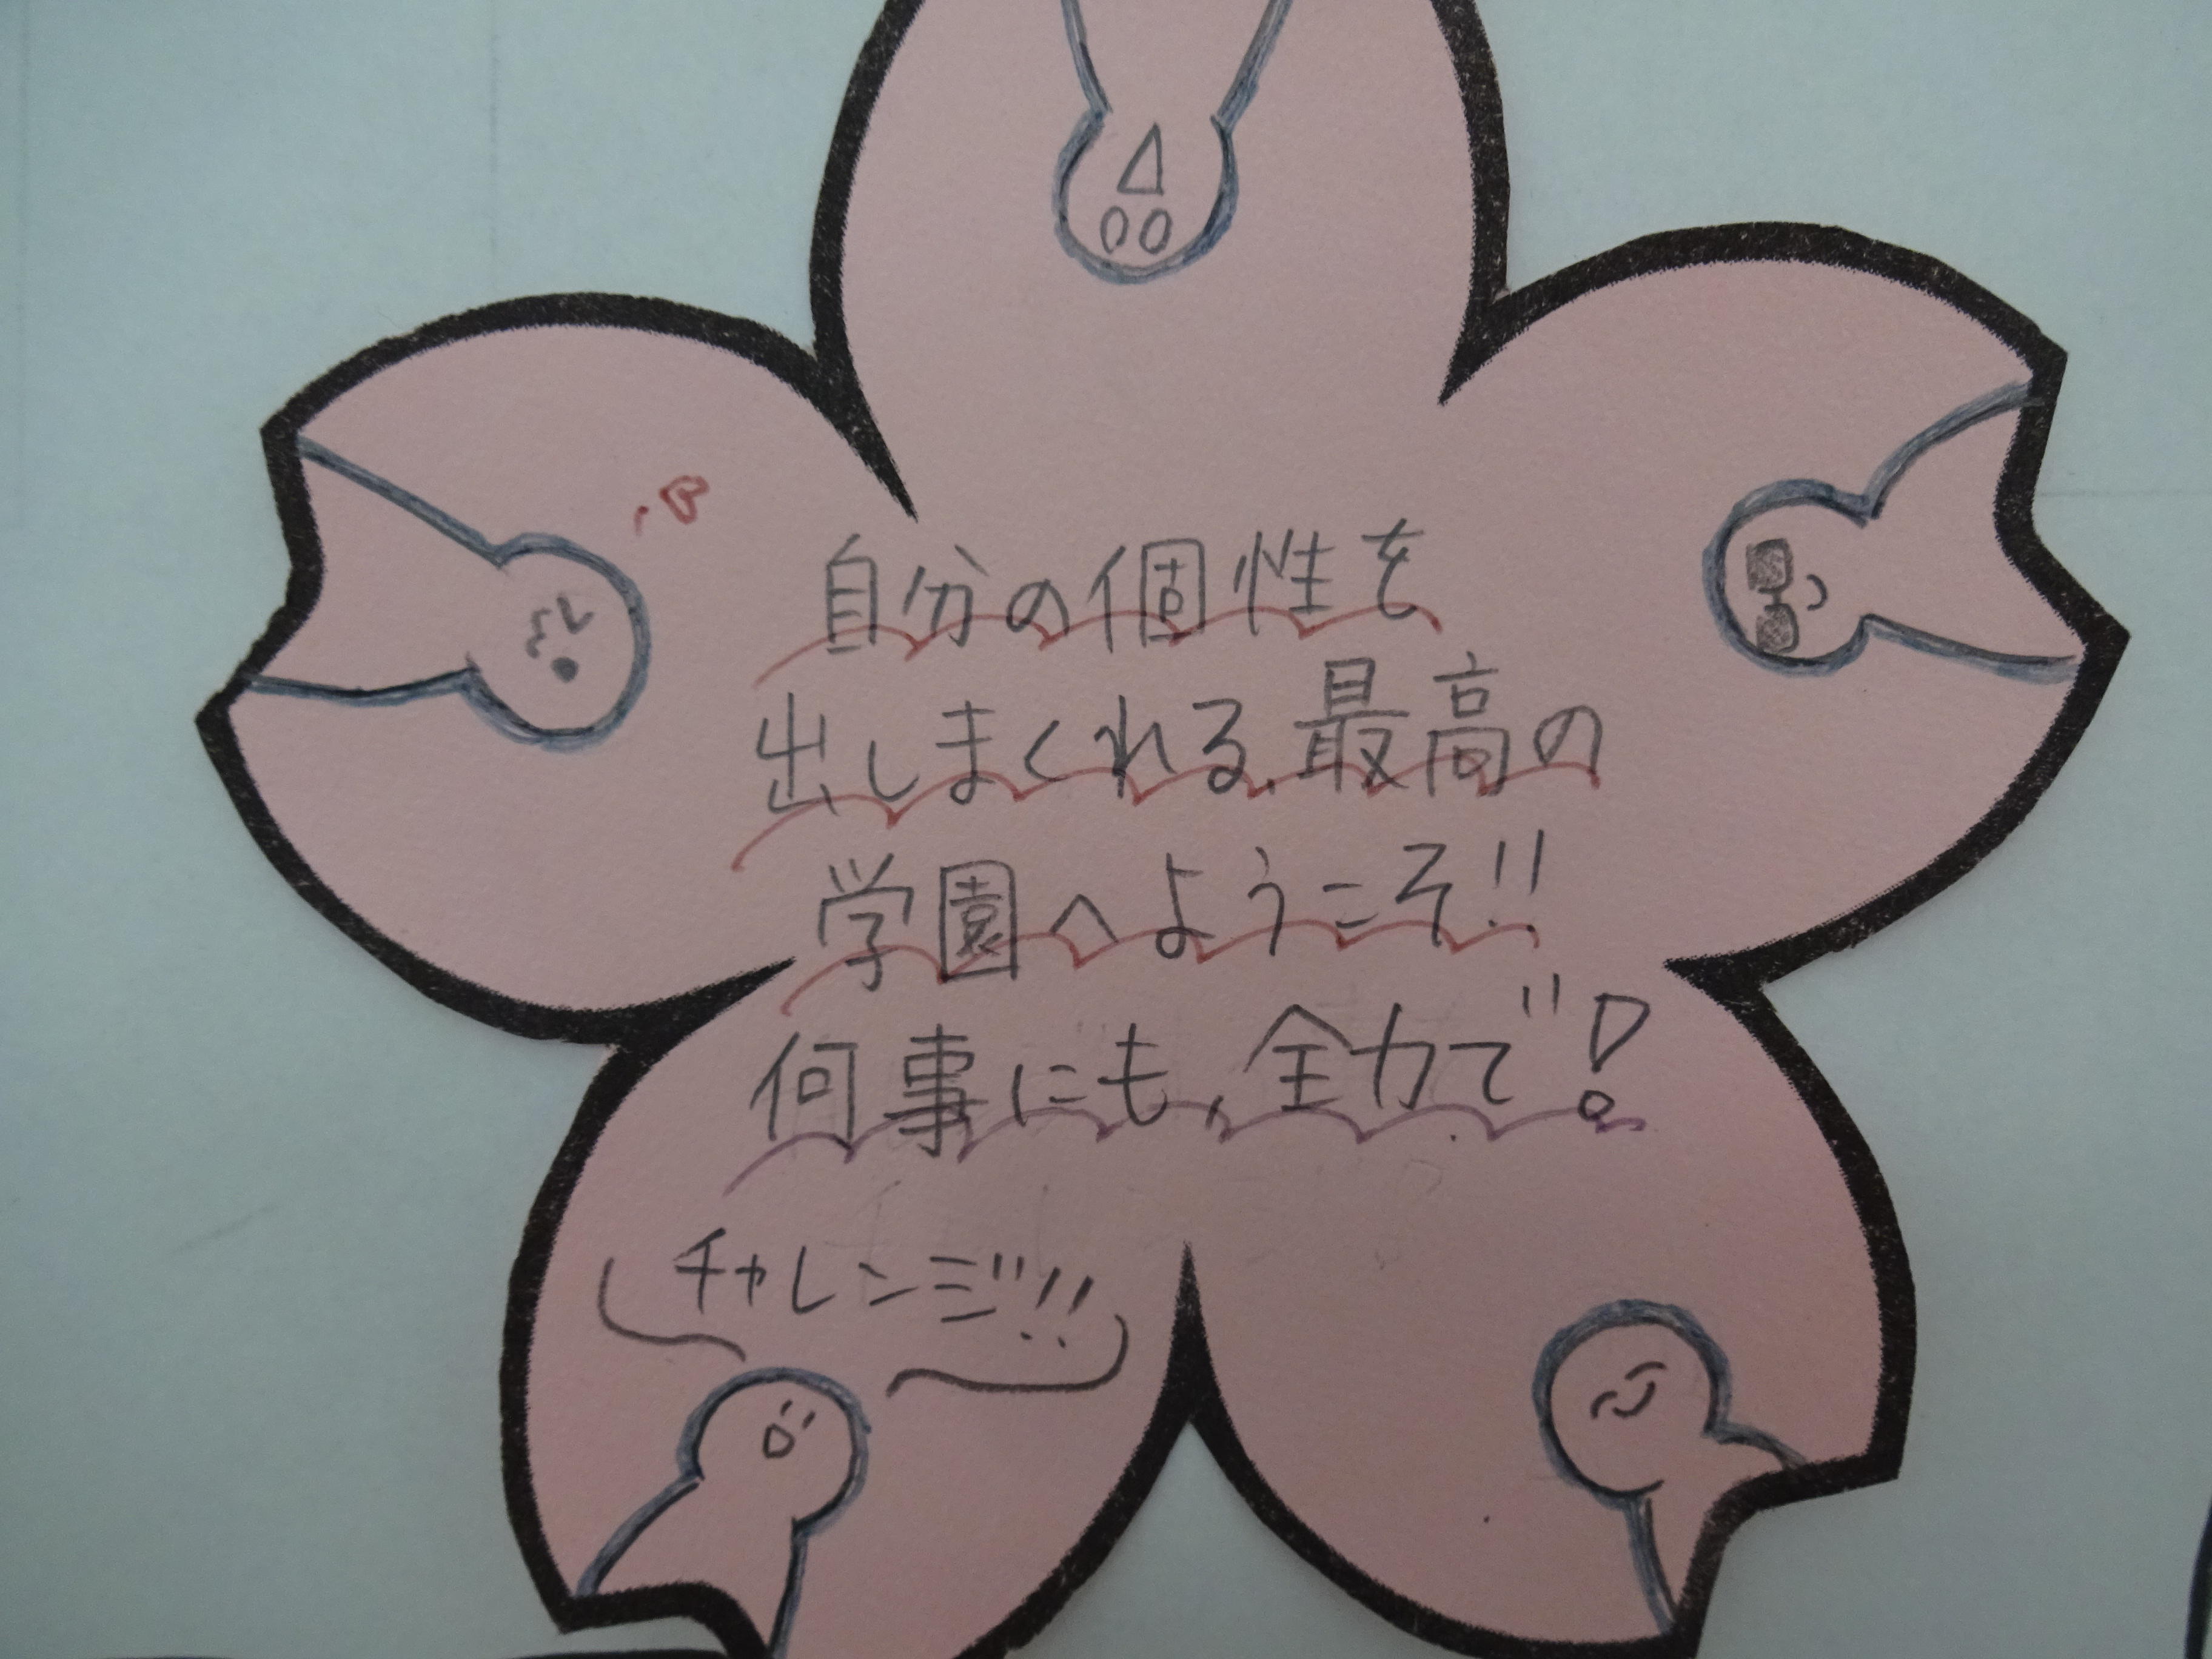 自分の個性を
出しまくれる、最高の
学園へようこそ!!
何事にも、全力で!
チャレンジ!!